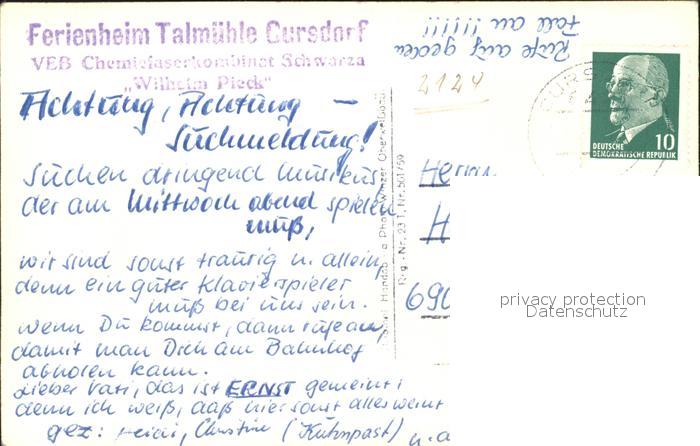 Ferienheim Talmühle Cursdorf
VEB Chemiefaserkombinat Schwarza
„Wilhelm Pieck"
Rufe auf jeden
Fall an !!!!!!
2124
Achtung, Achtung –
Suchmeldung!
Suchen dringend Musikus,
der am Mittwoch abend spielen
muß,
wir sind sonst traurig u. allein,
denn ein guter Klavierspieler
muß bei uns sein.
Wenn Du kommst, dann rufe an,
damit man Dich am Bahnhof
abholen kann.
Lieber Vati, das ist ERNST gemeint!
denn ich weiß, daß hier sonst alles weint
gez: Heidi, Christine (Kuhnpast) u.a
Reg.-Nr. 23 T, Nr. 501/59
CURS
10
DEUTSCHE
DEMOKRATISCHE REPUBLIK
Herrn
H
690
privacy protection
Datenschutz